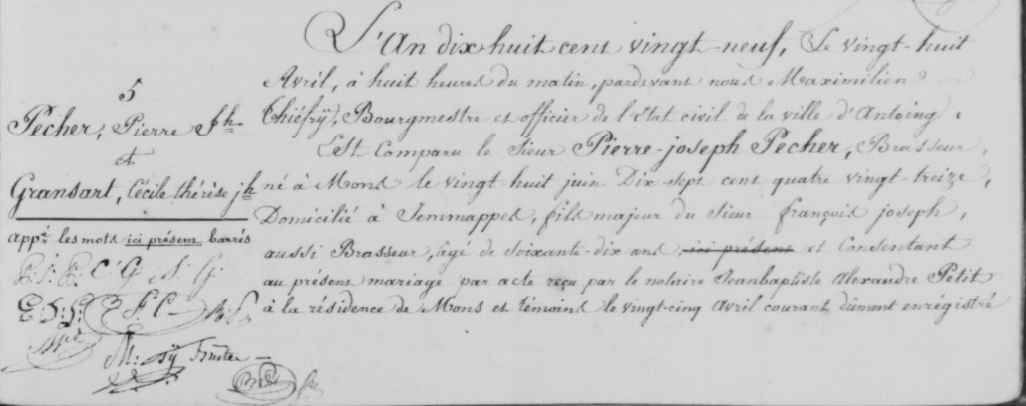 5
Pécher, Pierre Jh
et
Gransart, Cécile thérèse jh
appé les mots ici présent barrés
P. J. P. C G J. G.
L'An dix huit cent vingt-neuf, Le vingt-huit
Avril, à huit heures du matin, pardevant nous Maximilien
Thiéfrÿ, Bourgmestre et officier de l'Etat civil de la ville d'Antoing,
Est Comparu le Sieur Pierre-joseph Pécher, Brasseur,
né à Mons le vingt huit juin Dix-sept cent quatre vingt treize,
Domicilié à Jemmappes, fils majeur du Sieur françois joseph,
aussi Brasseur, âgé de soixante-dix ans, ici présent et Consentant
au présent mariage par acte reçu par le notaire Jeanbaptiste Alexandre Petit
à la résidence de Mons et témoins le vingt-cinq Avril courant dûment enrégistré